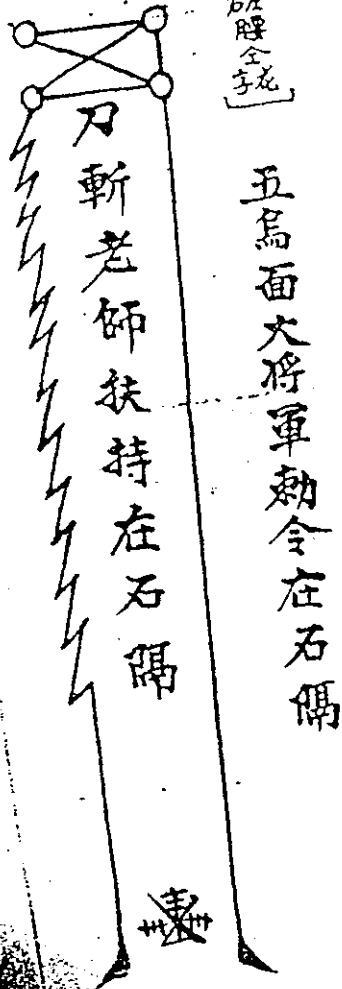 五烏面大将軍勅令在石隔
刀斬老師扶持在石隔